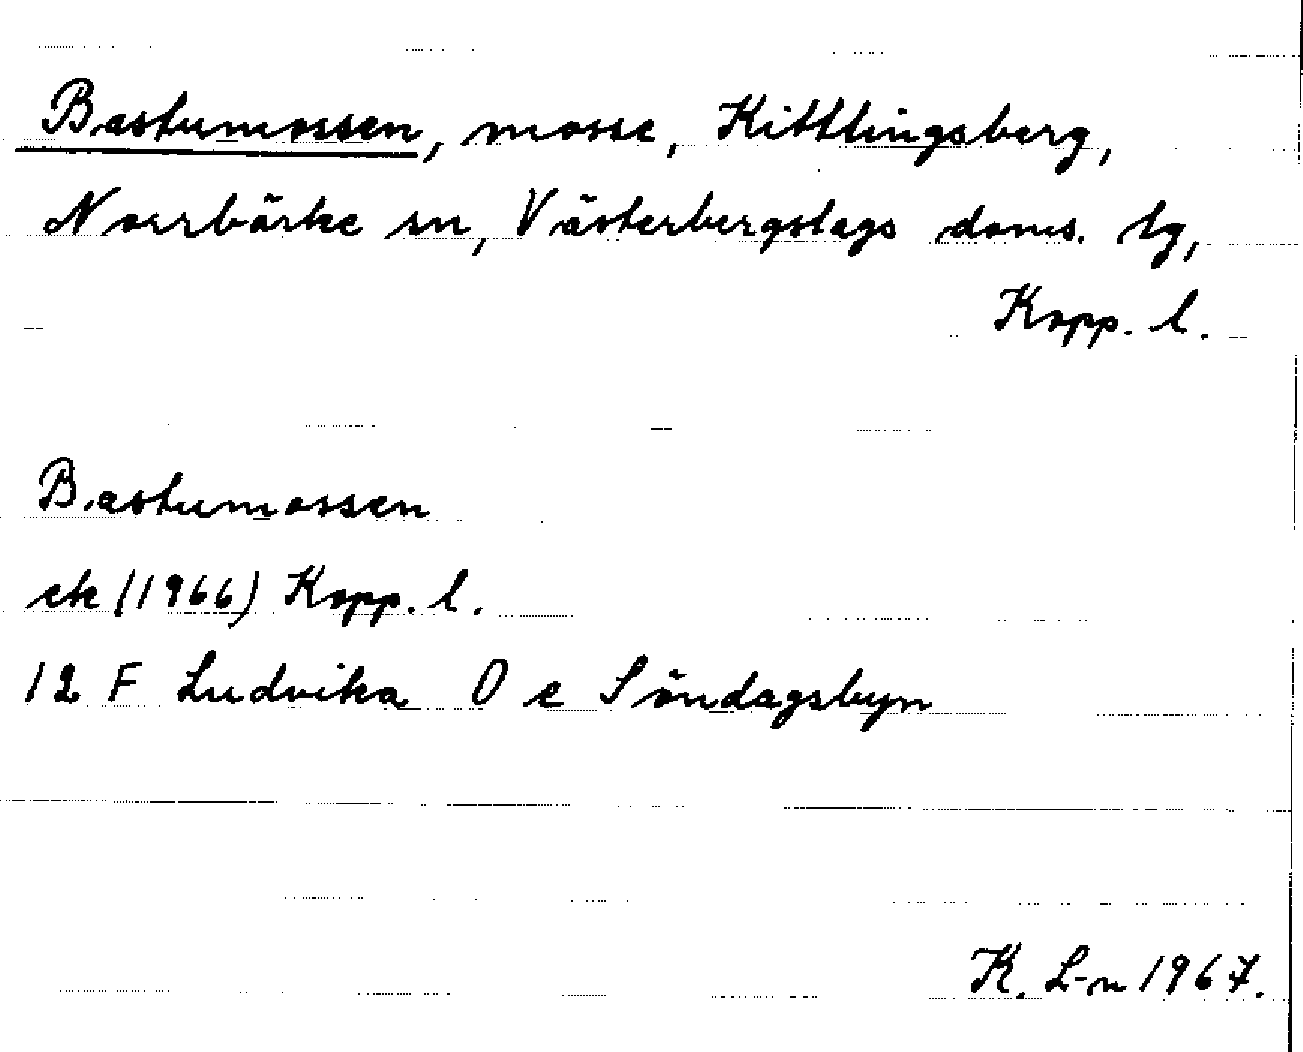 Bastumossen, mosse, Kittlingsberg,
Norrbärke sn, Västerbergslags doms. lg,
Kopp. l.
Bastumossen
ek (1966) Kopp. l.
12 F Ludvika 0 e Söndagsbyn
K. L-n 1967.